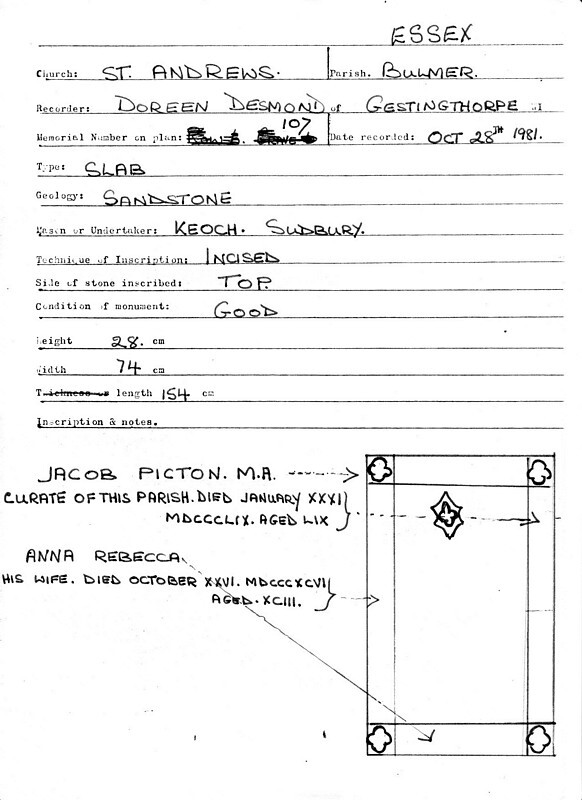 ESSEX
Church: ST. ANDREWS. Parish. BULMER.
Recorder: DOREEN DESMOND of GESTINGTHORPE
107
Memorial Number on plan: Date recorded: OCT 28TH 1981.
Type: SLAB
Geology: SANDSTONE
Mason or Undertaker: KEOCH. SUDBURY.
Technique of Inscription: INCISED
Side of stone inscribed: TOP.
Condition of monument: GOOD
height 28. cm
width 74 cm
Thickness or length 154 cm
Inscription & notes.
JACOB PICTON. M.A.
CURATE OF THIS PARISH. DIED JANUARY XXXI
MDCCCLIX. AGED LIX
ANNA REBECCA
HIS WIFE. DIED OCTOBER XXVI. MDCCCXCVI
AGED. XCIII.